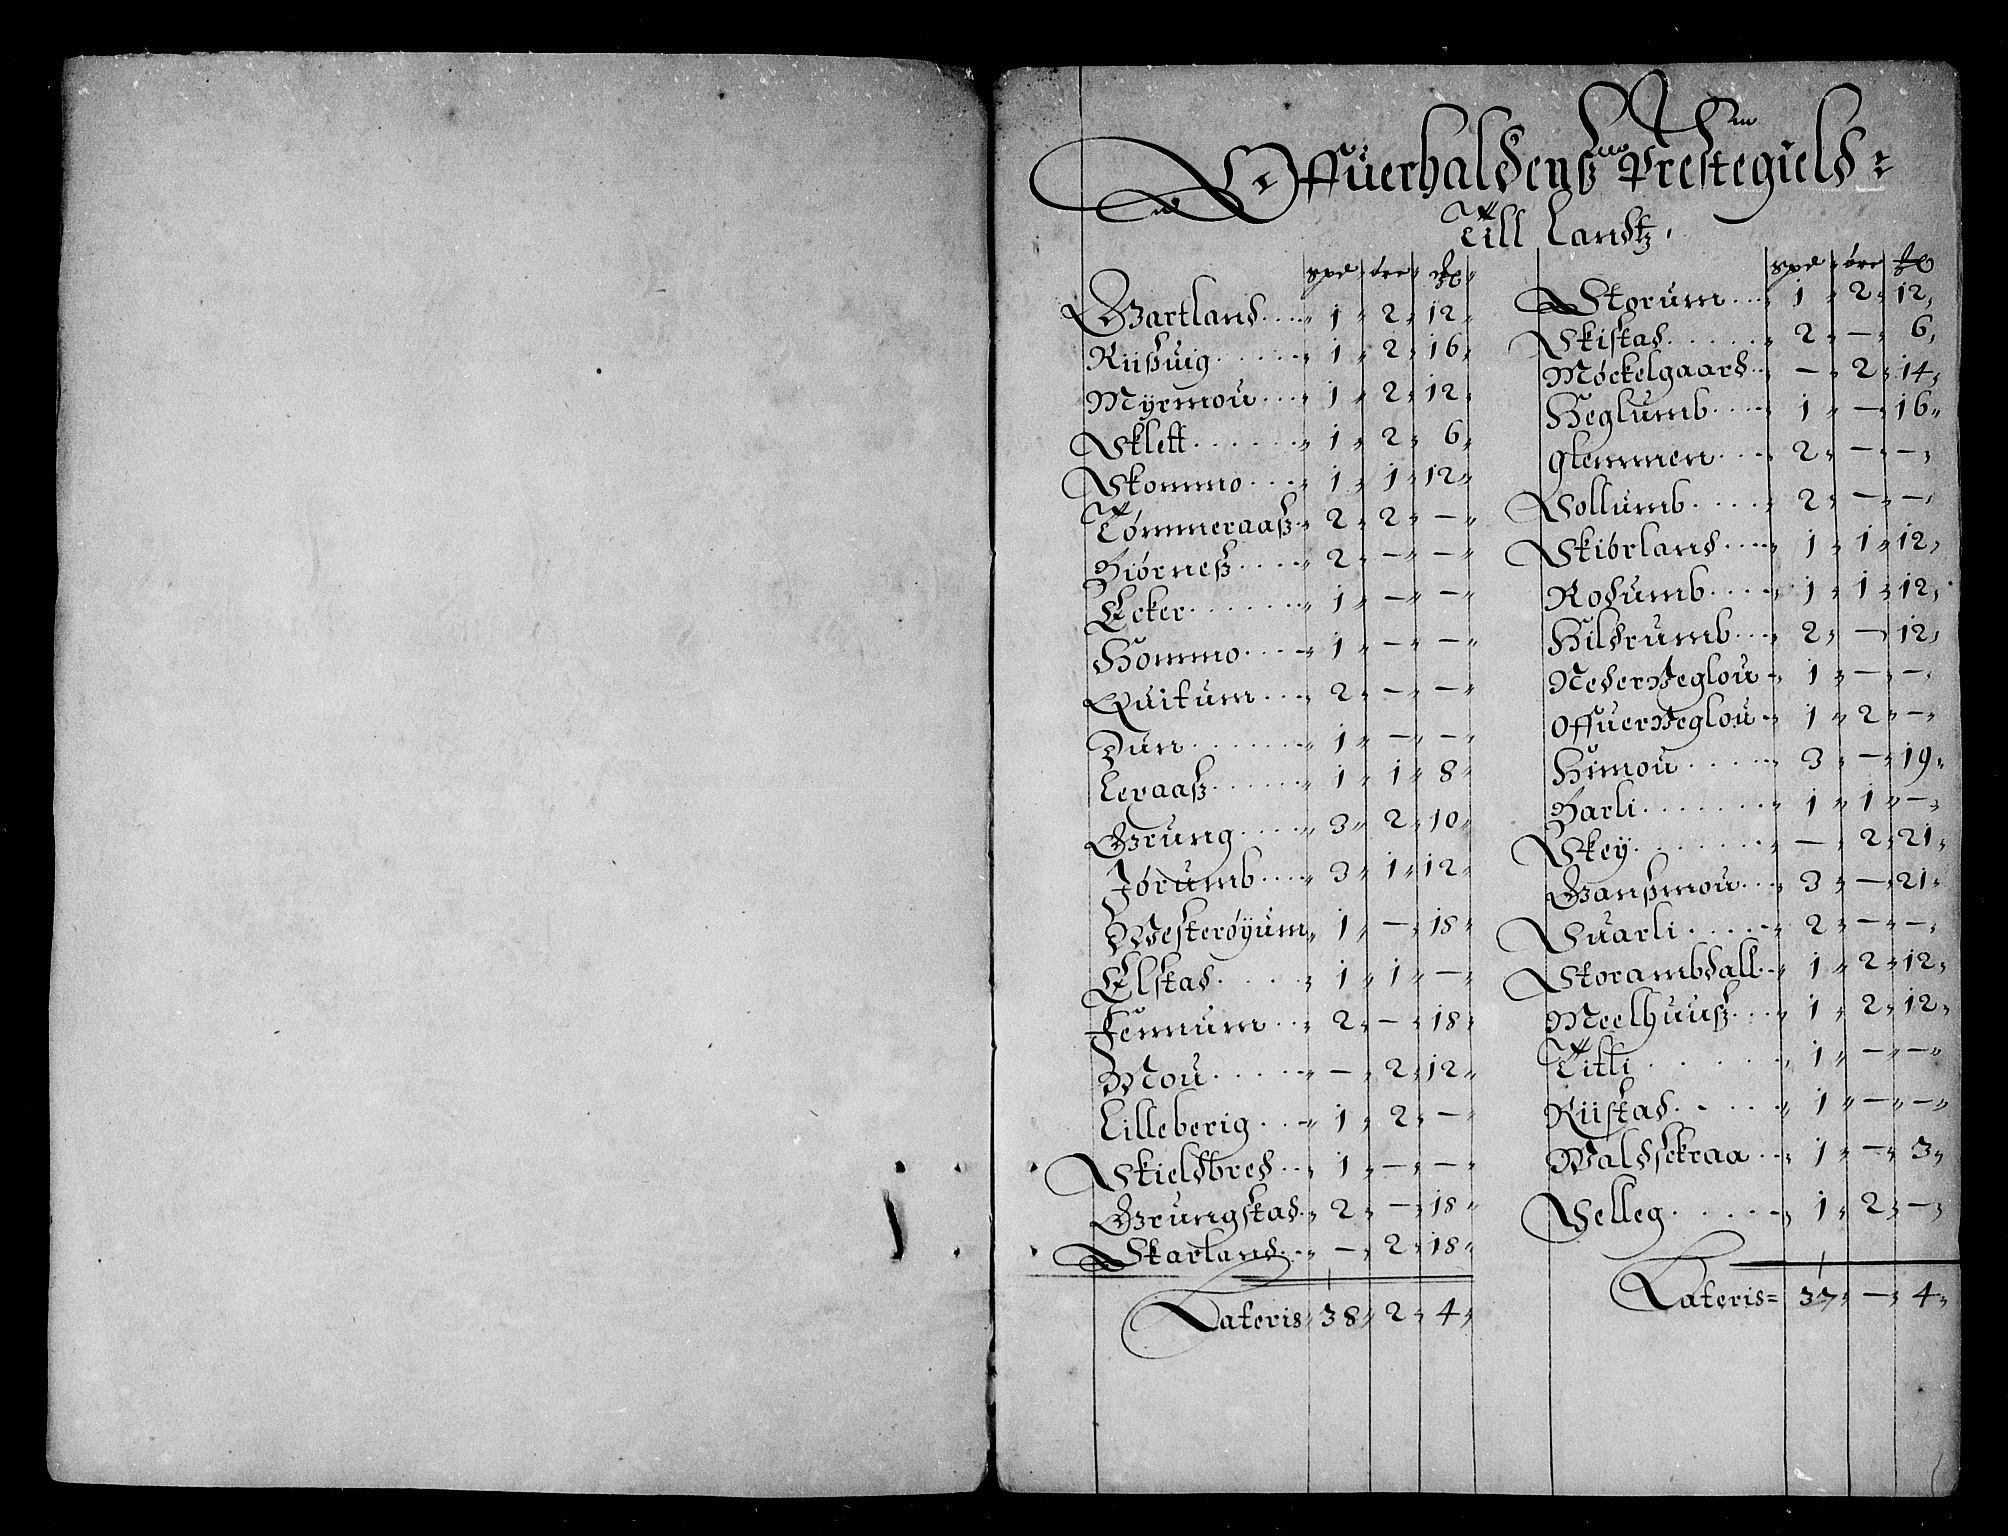 Offuerhaldens Prestegield
Till Landtz
spd øre ℔
Gartland 1 2 12
Riißuig 1 2 16
Myrmou 1 2 12
Sklett 1 2 6
Skommo 1 1 12
Tømmeraaß 2 2 —
Biørneß 2 — —
Ecker 1 — —
Hommo 1 — —
Quitum 2 — —
Dun 1 — —
Leraaß 1 1 8
Grung 3 2 10
Jørumb 3 1 12
Westerøyum 1 — 18
Elstad 1 1 —
Femum 2 — 18
Mou — 2 12
Lilleberig 1 2 —
Skieldbred 1 — —
Grungstad 2 — 18
Skarland — 2 18
Lateris 38 2 4
spd øre ℔
Storum 1 2 12
Skistad 2 — 6
Møckelgaard — 2 14
Heglumb 1 — 16
Glemmen 2 — —
Sollumb 2 — —
Skiørland 1 1 12
Rodumb 1 1 12
Hildrumb 2 — 12
Neder Reglou 1 — —
Offuer Reglou 1 2 —
Himou 3 — 19
Barli 1 1 —
Skey — 2 21
Ganßmou 3 — 21
Suarli 2 — —
Storambdall 1 2 12
Meelhuuß 1 2 12
Titli 1 — —
Riistad 1 — —
Waldsckraa 1 — 3
Selleg 1 2 —
Lateris = 37 — 4